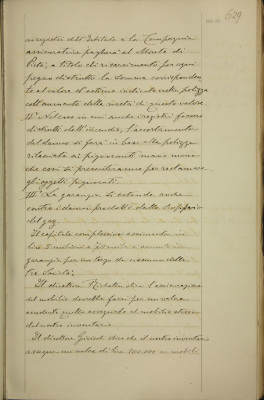 629
ai registri dell'Istituto e la Compagnia
assicuratrice pagherà al Monte di
Pietà, a titolo di risarcimento per ogni
pegno distrutto la somma corrisponden
te al valore d'estimo indicato nella polizza
coll'aumento della metà di questo valore.
Nel caso in cui anche i registri fossero
distrutti dall'incendio, l'accertamento
del danno si farà in base alle polizze
rilasciate ai pignoranti mano mano
che così si presenteranno per reclamare
gli oggetti pignorati.
La garanzia si estende anche
contro i danni prodotti dallo scoppio
del gaz.
Il capitale complessivo
lire 3 milioni e
garanzia per un terzo da ciascuna delle
tre Società;
Il direttore dice l'assicurazione
del mobilio dovrebbe farsi per un valore
quello assegnato al mobilio stesso
dal nostro inventario.
Il direttore dice che il nostro inventario
assegna un valore di lire 100.000 ai mobili